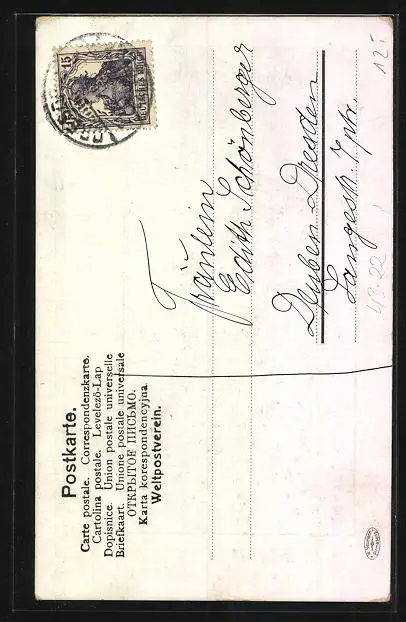 Postkarte.
Carte postale. Correspondenzkarte.
Cartolina postale. Levelező-Lap
Dopisnice. Union postale universelle
Briefkaart. Unione postale universale
ОТКРЫТОЕ ПИСЬМО.
Karta korespondencyjna.
Weltpostverein.
15
Fräulein
Edith Schönberger
Deuben-Dresden
Langestr. 7 ptr.
12.-